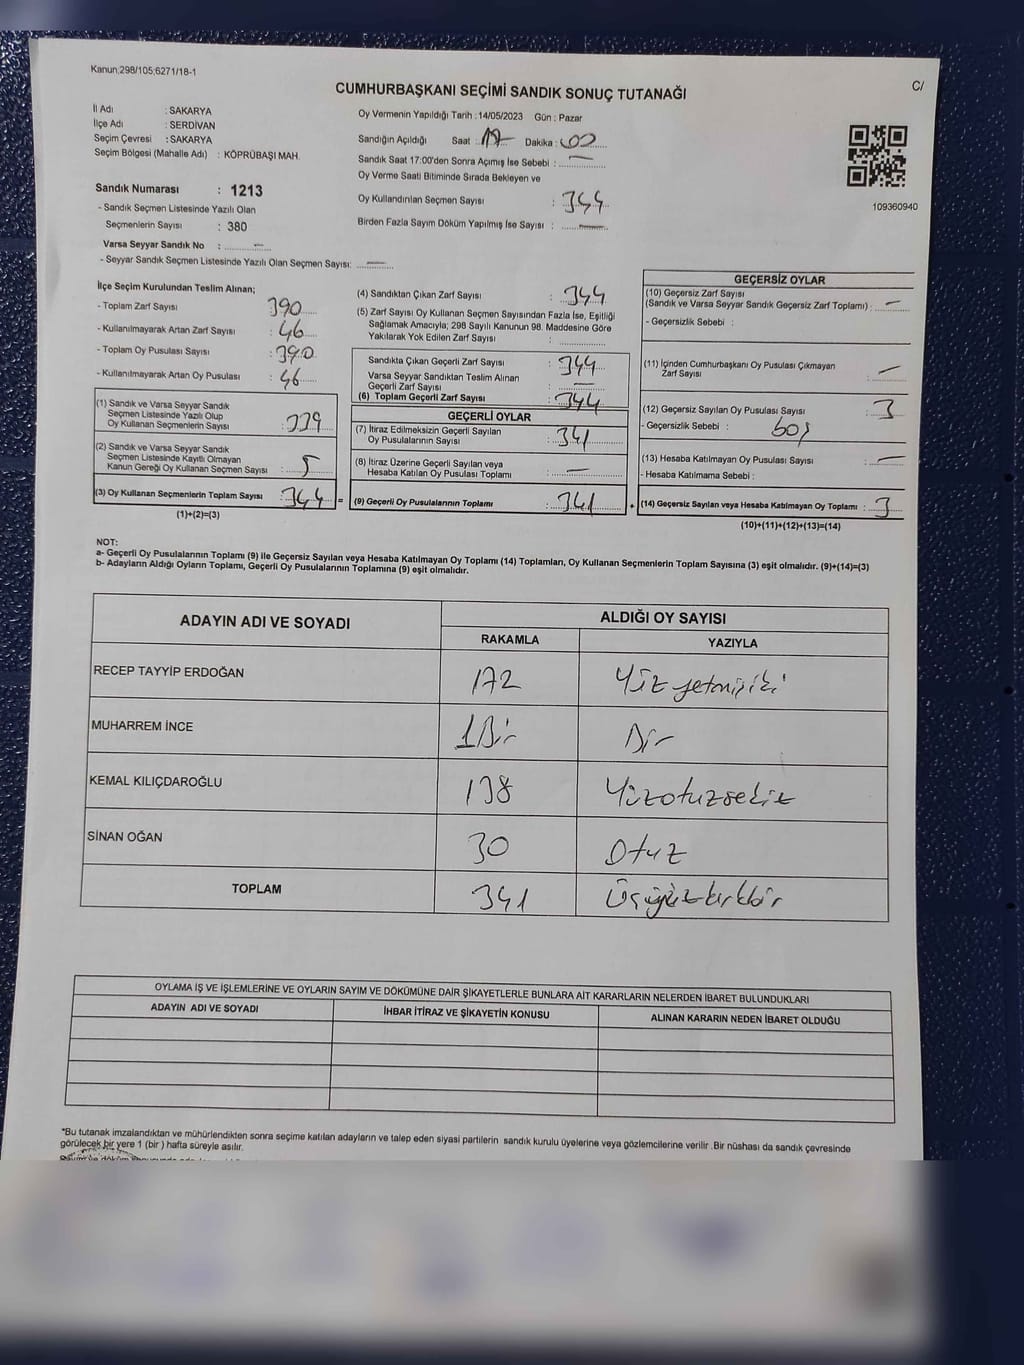 Kanun;298/105;6271/18-1
C/
CUMHURBAŞKANI SEÇİMİ SANDIK SONUÇ TUTANAĞI
İl Adı : SAKARYA
İlçe Adı : SERDİVAN
Seçim Çevresi : SAKARYA
Seçim Bölgesi (Mahalle Adı) : KÖPRÜBAŞI MAH.
Sandık Numarası : 1213
- Sandık Seçmen Listesinde Yazılı Olan
Seçmenlerin Sayısı : 380
Varsa Seyyar Sandık No : —
- Seyyar Sandık Seçmen Listesinde Yazılı Olan Seçmen Sayısı: —
Oy Vermenin Yapıldığı Tarih : 14/05/2023 Gün : Pazar
Sandığın Açıldığı Saat : 17 Dakika : 00
Sandık Saat 17:00'den Sonra Açımış İse Sebebi : —
Oy Verme Saati Bitiminde Sırada Bekleyen ve
Oy Kullandırılan Seçmen Sayısı : 344
Birden Fazla Sayım Döküm Yapılmış İse Sayısı : —
109360940
İlçe Seçim Kurulundan Teslim Alınan;
- Toplam Zarf Sayısı : 390
- Kullanılmayarak Artan Zarf Sayısı : 46
- Toplam Oy Pusulası Sayısı : 390
- Kullanılmayarak Artan Oy Pusulası : 46
(1) Sandık ve Varsa Seyyar Sandık
Seçmen Listesinde Yazılı Olup
Oy Kullanan Seçmenlerin Sayısı : 339
(2) Sandık ve Varsa Seyyar Sandık
Seçmen Listesinde Kayıtlı Olmayan
Kanun Gereği Oy Kullanan Seçmen Sayısı : 5
(3) Oy Kullanan Seçmenlerin Toplam Sayısı : 344 =
(1)+(2)=(3)
(4) Sandıktan Çıkan Zarf Sayısı : 344
(5) Zarf Sayısı Oy Kullanan Seçmen Sayısından Fazla İse, Eşitliği
Sağlamak Amacıyla; 298 Sayılı Kanunun 98. Maddesine Göre
Yakılarak Yok Edilen Zarf Sayısı :
Sandıkta Çıkan Geçerli Zarf Sayısı : 344
Varsa Seyyar Sandıktan Teslim Alınan
Geçerli Zarf Sayısı : —
(6) Toplam Geçerli Zarf Sayısı : 344
GEÇERLİ OYLAR
(7) İtiraz Edilmeksizin Geçerli Sayılan
Oy Pusulalarının Sayısı : 341
(8) İtiraz Üzerine Geçerli Sayılan veya
Hesaba Katılan Oy Pusulası Toplamı : —
(9) Geçerli Oy Pusulalarının Toplamı : 341 +
GEÇERSİZ OYLAR
(10) Geçersiz Zarf Sayısı
(Sandık ve Varsa Seyyar Sandık Geçersiz Zarf Toplamı) : —
- Geçersizlik Sebebi :
(11) İçinden Cumhurbaşkanı Oy Pusulası Çıkmayan
Zarf Sayısı : —
(12) Geçersiz Sayılan Oy Pusulası Sayısı : 3
- Geçersizlik Sebebi : boş
(13) Hesaba Katılmayan Oy Pusulası Sayısı : —
- Hesaba Katılmama Sebebi :
(14) Geçersiz Sayılan veya Hesaba Katılmayan Oy Toplamı : 3
(10)+(11)+(12)+(13)=(14)
NOT:
a- Geçerli Oy Pusulalarının Toplamı (9) ile Geçersiz Sayılan veya Hesaba Katılmayan Oy Toplamı (14) Toplamları, Oy Kullanan Seçmenlerin Toplam Sayısına (3) eşit olmalıdır. (9)+(14)=(3)
b- Adayların Aldığı Oyların Toplamı, Geçerli Oy Pusulalarının Toplamına (9) eşit olmalıdır.
ADAYIN ADI VE SOYADI
ALDIĞI OY SAYISI
RAKAMLA YAZIYLA
RECEP TAYYİP ERDOĞAN 172 Yüz yetmişiki
MUHARREM İNCE 1 Bir Bir
KEMAL KILIÇDAROĞLU 138 Yüzotuzsekiz
SİNAN OĞAN 30 Otuz
TOPLAM 341 Üçyüzkırkbir
OYLAMA İŞ VE İŞLEMLERİNE VE OYLARIN SAYIM VE DÖKÜMÜNE DAİR ŞİKAYETLERLE BUNLARA AİT KARARLARIN NELERDEN İBARET BULUNDUKLARI
ADAYIN ADI VE SOYADI İHBAR İTİRAZ VE ŞİKAYETİN KONUSU ALINAN KARARIN NEDEN İBARET OLDUĞU
*Bu tutanak imzalandıktan ve mühürlendikten sonra seçime katılan adayların ve talep eden siyasi partilerin sandık kurulu üyelerine veya gözlemcilerine verilir .Bir nüshası da sandık çevresinde
görülecek bir yere 1 (bir ) hafta süreyle asılır.